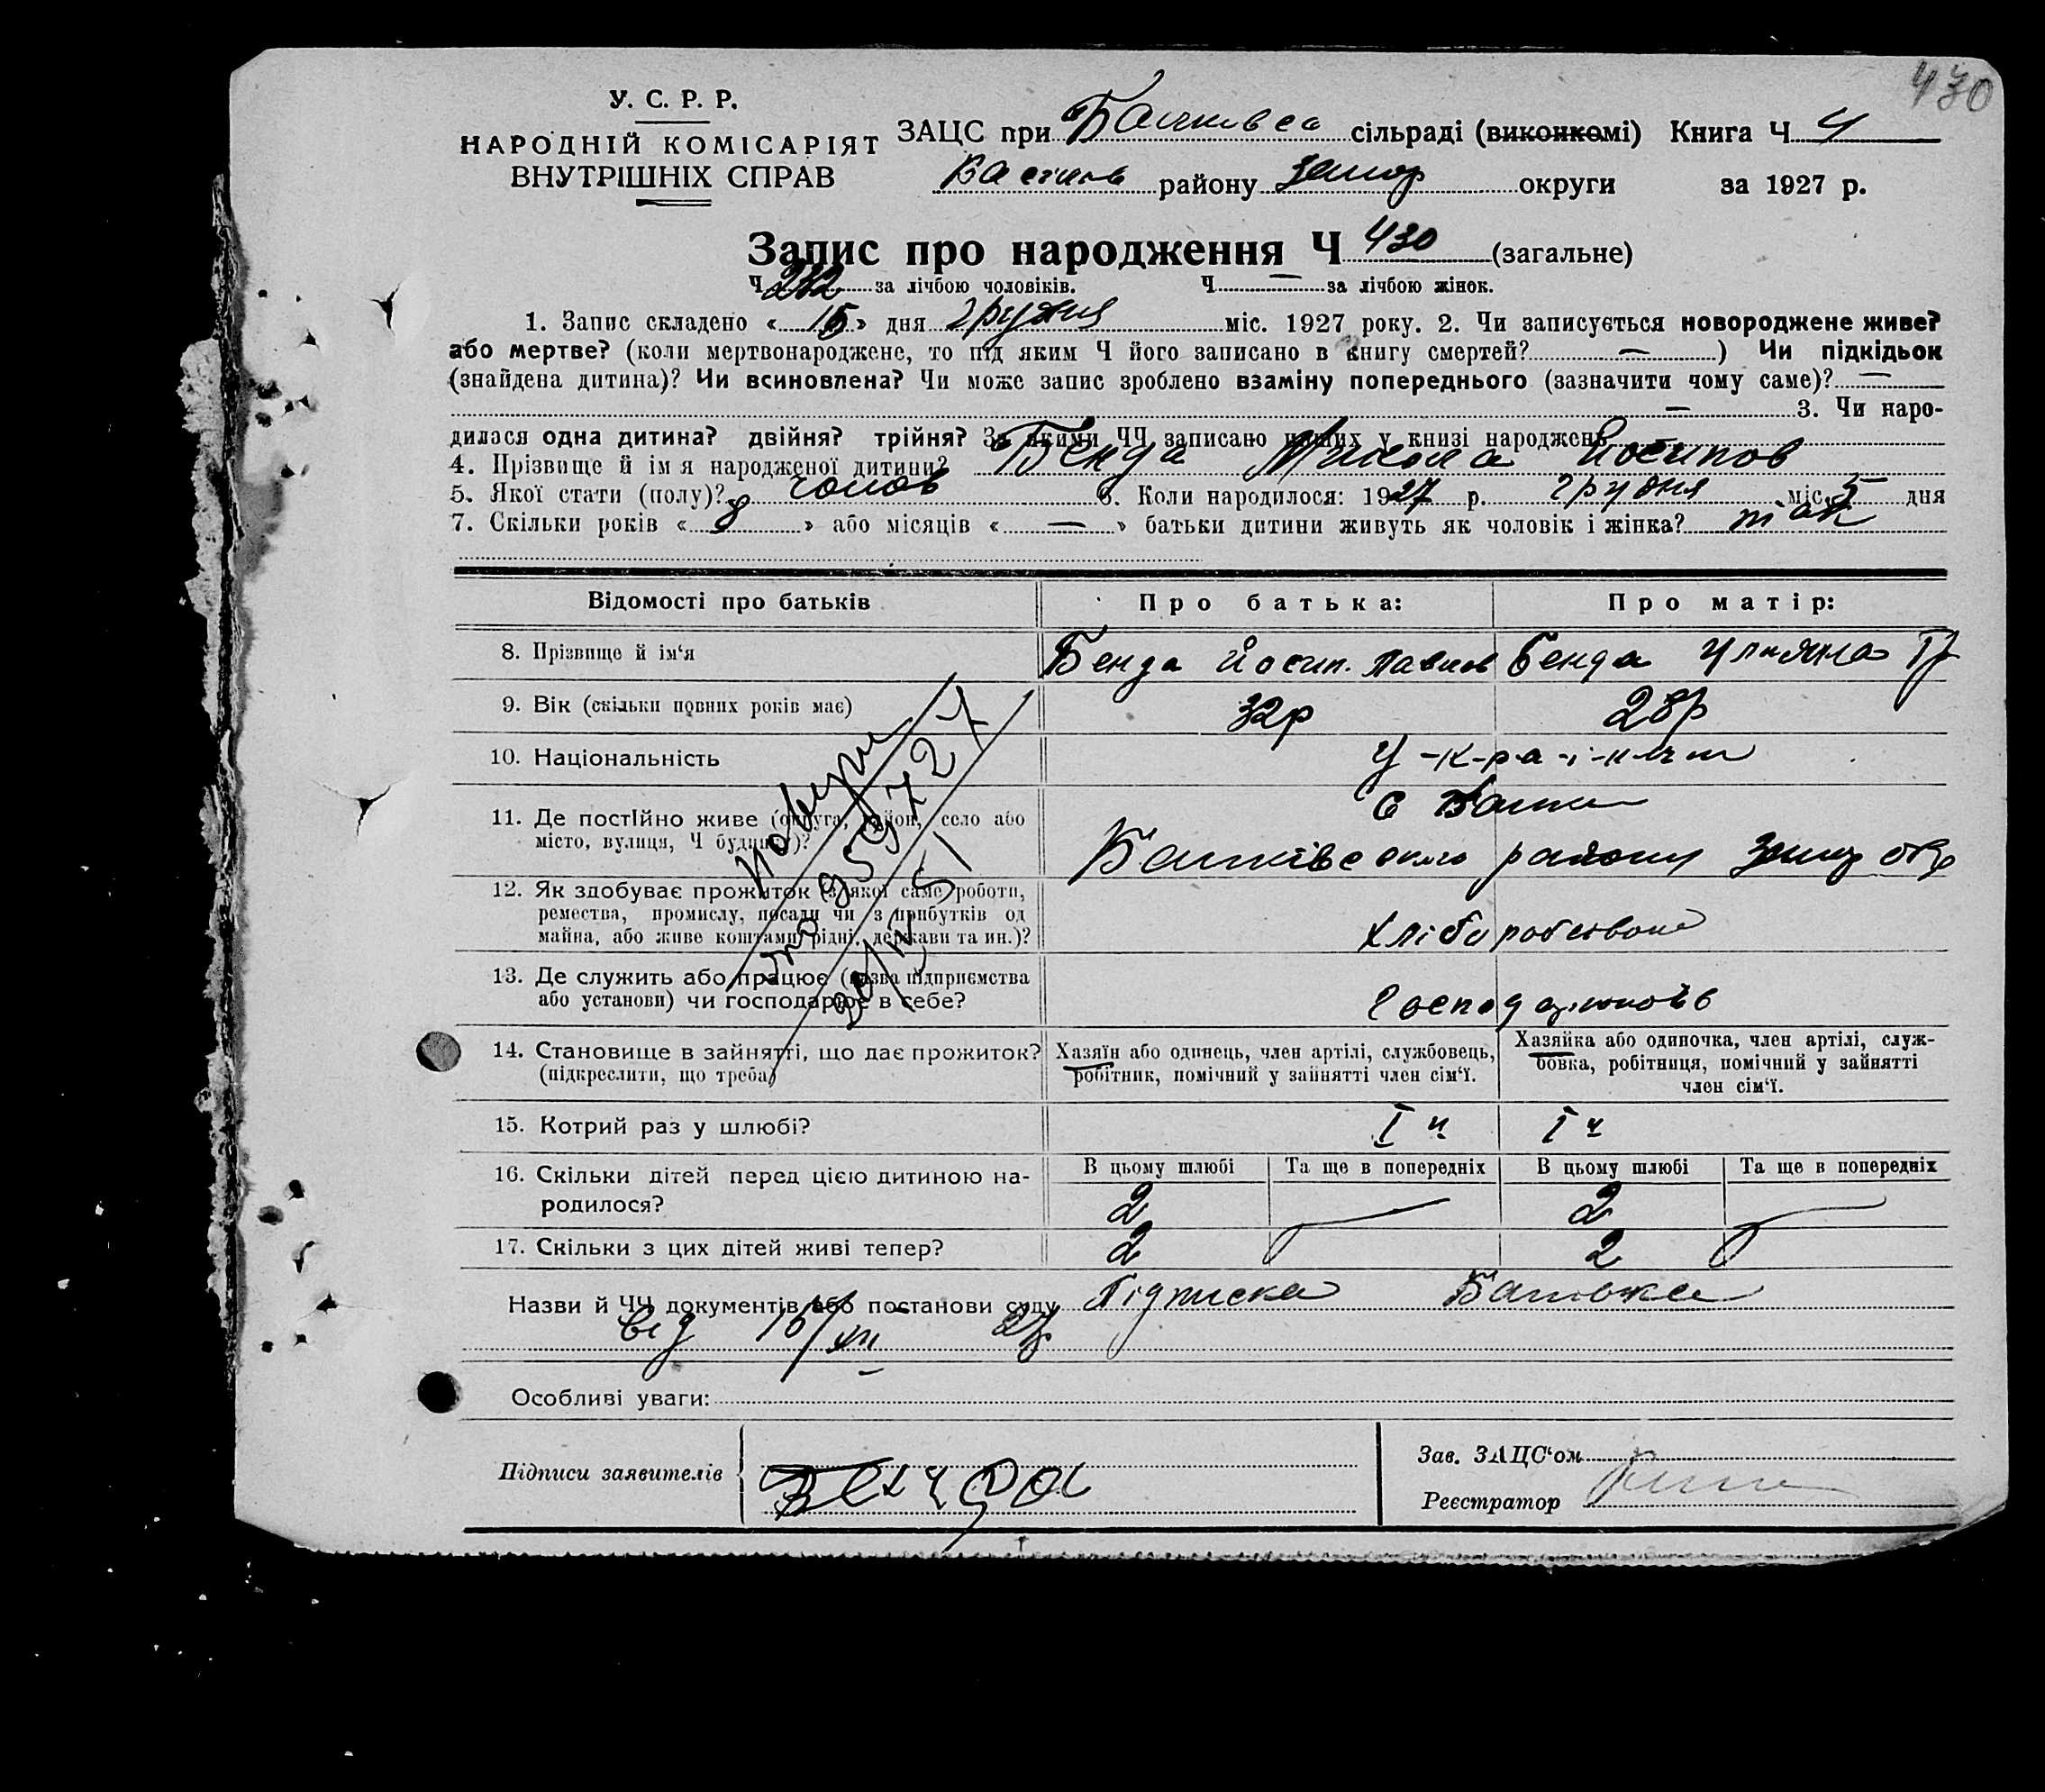 430
У. С. Р. Р.
НАРОДНІЙ КОМІСАРІЯТ
ВНУТРІШНІХ СПРАВ
ЗАЦС при сільраді (виконкомі) Книга Ч 4
району Запор округи за 1927 р.
Запис про народження Ч 430 (загальне)
Ч 212 за лічбою чоловіків. Ч — за лічбою жінок.
1. Запис складено « 15 » дня грудня міс. 1927 року. 2. Чи записується новороджене живе?
або мертве? (коли мертвонароджене, то під яким Ч його записано в книгу смертей? — ) Чи підкідьок
(знайдена дитина)? Чи всиновлена? Чи може запис зроблено взаміну попереднього (зазначити чому саме)? —
— 3. Чи наро-
дилася одна дитина? двійня? трійня? За якими ЧЧ записано инших у книзі народжень
4. Прізвище й ім'я народженої дитини? Бенда Микола Йосипов
5. Якої статі (полу)? чолов 6. Коли народилося: 1927 р. грудня міс. 5 дня
7. Скільки років « 8 » або місяців « — » батьки дитини живуть як чоловік і жінка? так
Відомості про батьків Про батька: Про матір:
8. Прізвище й ім'я Бенда Йосип. Павлов Бенда Ульяна
9. Вік (скільки повних років має) 32р 28р
10. Національність У-к-ра-ї-н
11. Де постійно живе (округа, район, село або
місто, вулиця, Ч будинку)? району Запор окр
12. Як здобуває прожиток (з якої саме роботи,
ремества, промислу, посади чи з прибутків од
майна, або живе коштами рідні, держави та ин.)? Хліборобством
13. Де служить або працює (назва підприємства
або установи) чи господарює в себе?
14. Становище в зайнятті, що дає прожиток?
(підкреслити, що треба)
Хазяїн або одинець, член артілі, службовець,
робітник, помічний у зайнятті член сім'ї.
Хазяйка або одиночка, член артілі, служ-
бовка, робітниця, помічний у зайнятті
член сім'ї.
15. Котрий раз у шлюбі? І й І й
16. Скільки дітей перед цією дитиною на-
родилося?
В цьому шлюбі Та ще в попередніх В цьому шлюбі Та ще в попередніх
2 — 2 —
17. Скільки з цих дітей живі тепер? 2 2
Назви й ЧЧ документів або постанови суду Підписка Батька
від 15/XII 27р
Особливі уваги:
Підписи заявителів Бенда
Зав. ЗАЦС'ом
Реєстратор